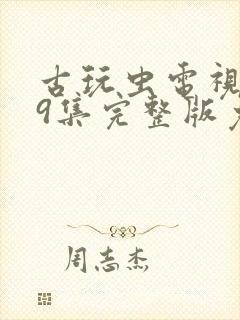 古玩虫电视
9集完整版
周志杰